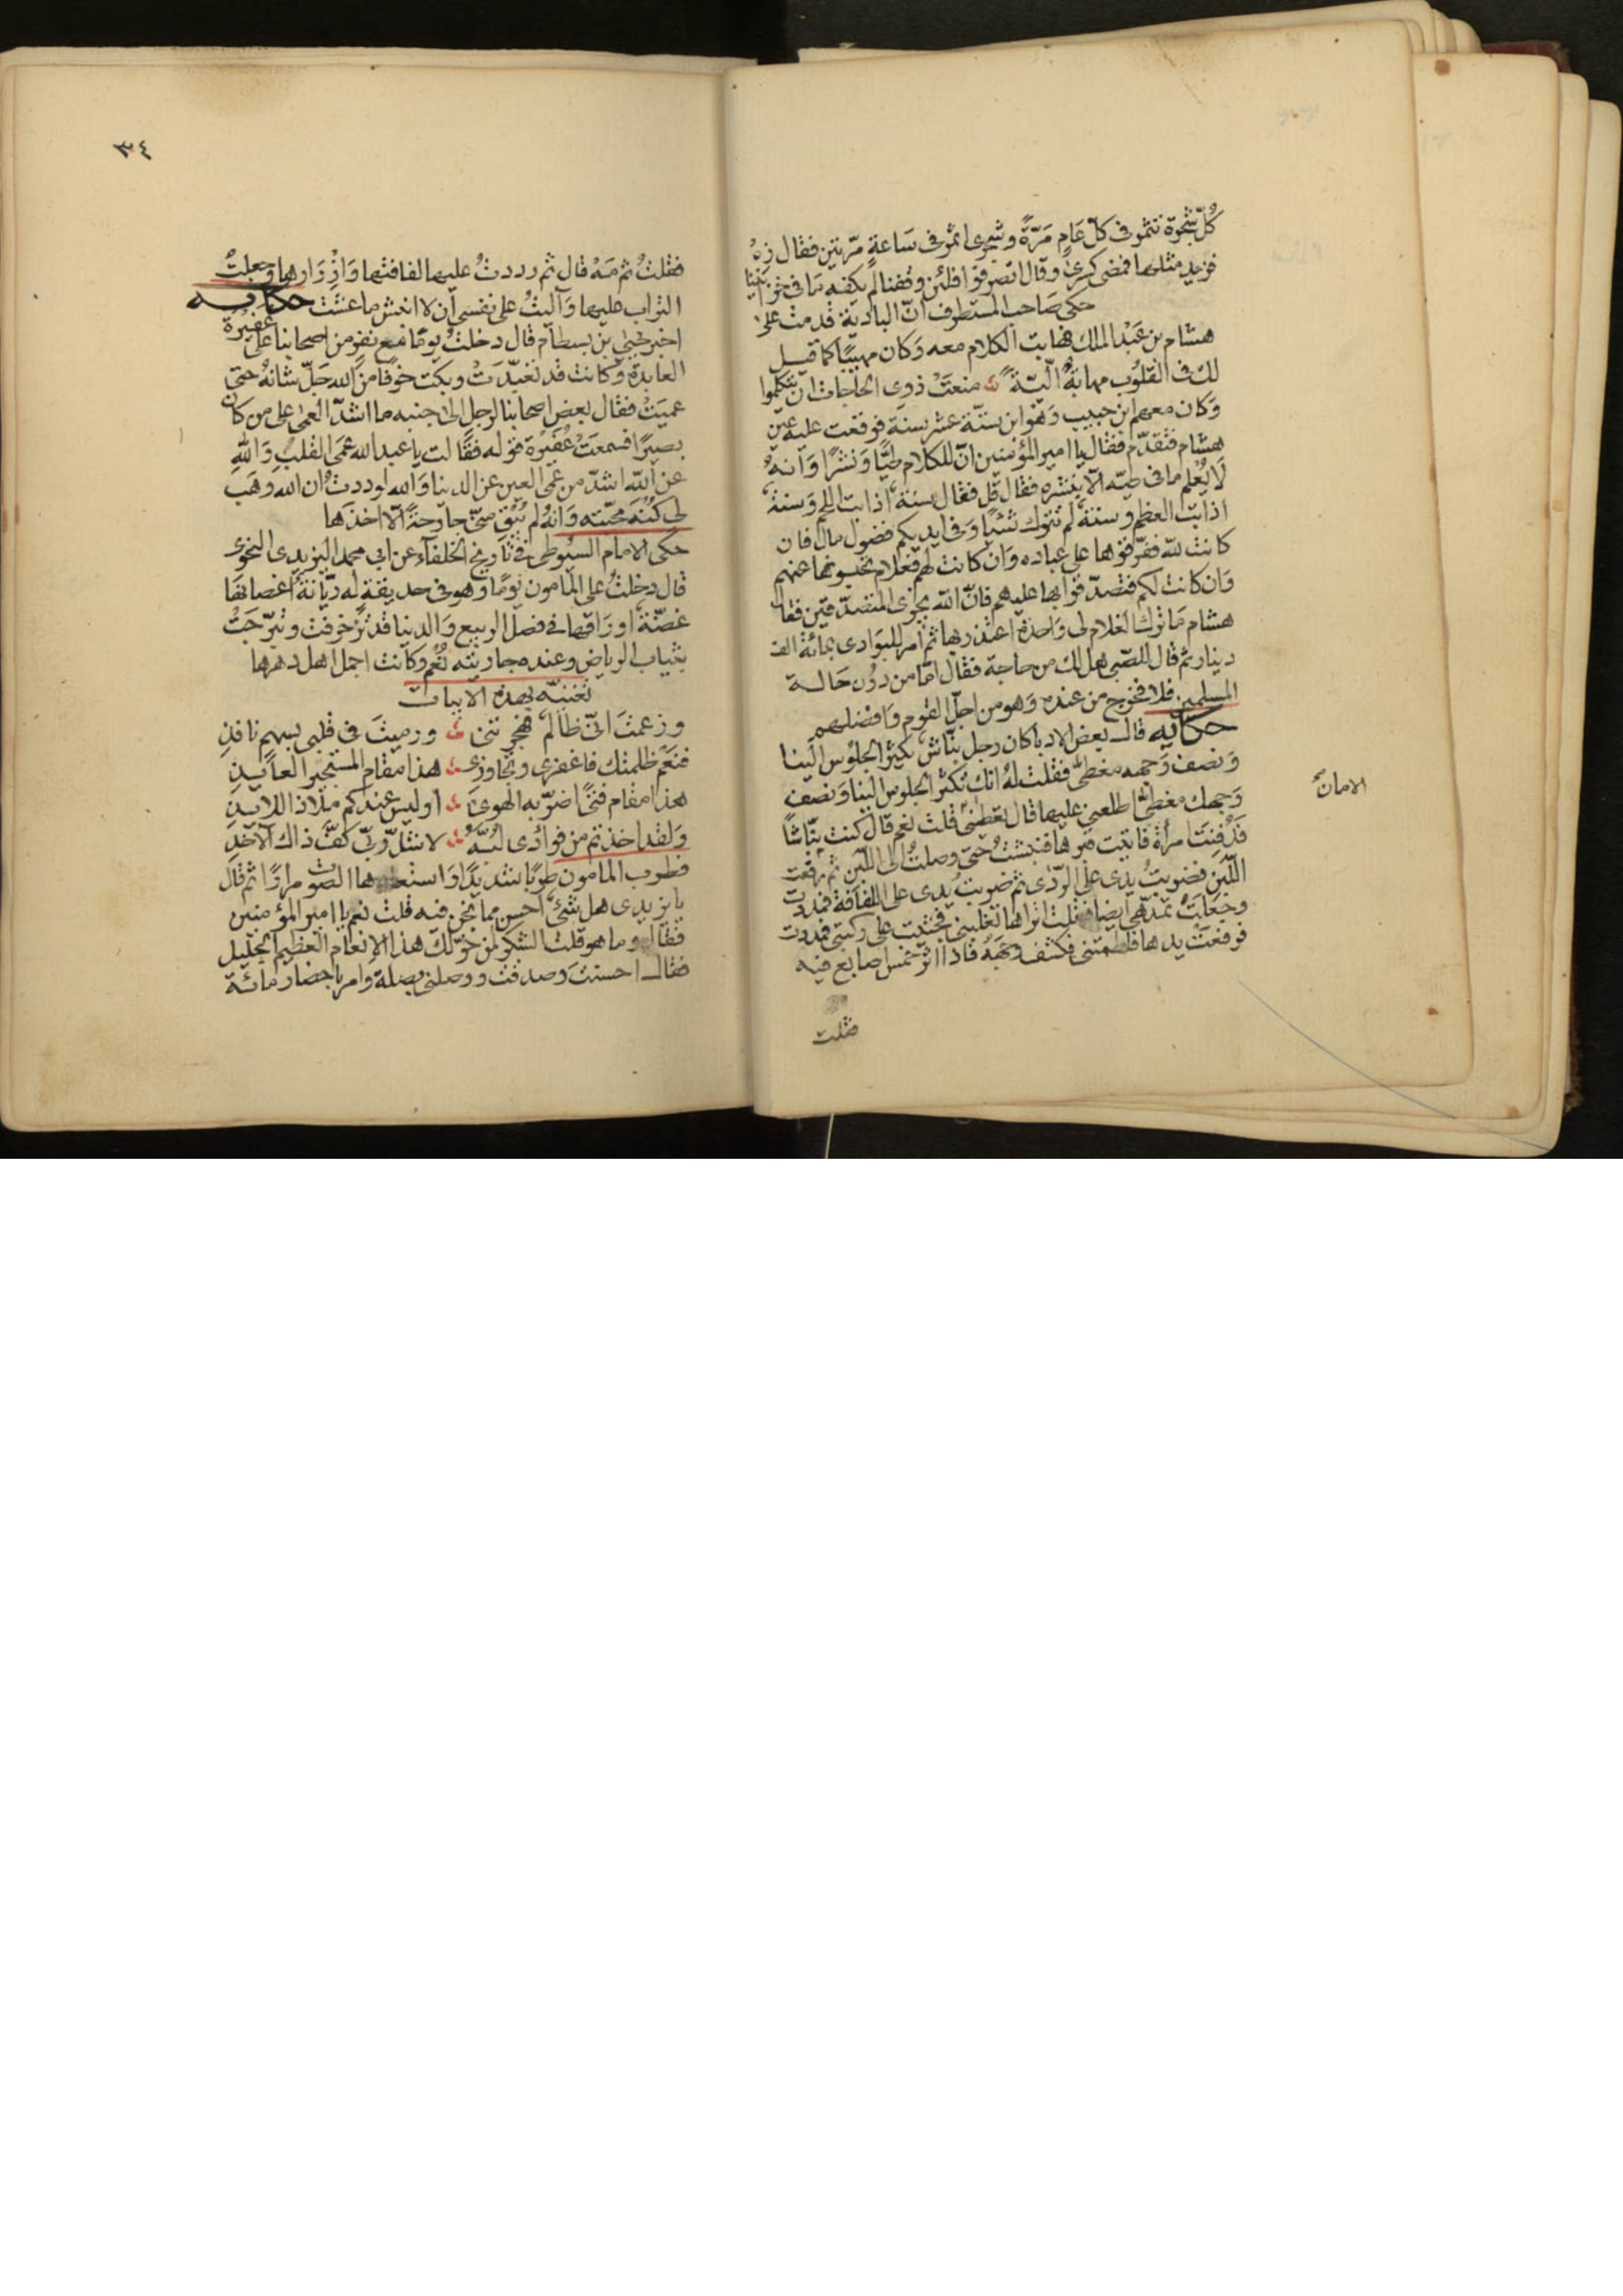 كُلّ شجرة تثمر فى كلّ عَامٍ مَرّةً وشجرى اثمر فى سَاعةٍ مرّتين فقال زِهْ
فزيد مثلها فمضى كسرى وقال انصرفوا فلئن وقفنا لم يكفه مَا فى خزائننا
حكى صَاحب المستطرف انّ البادية قدمت على
هشام بن عَبْد الملك فهابت الكلام معه وَكان مهيبًا كما قيل
لك فى القلوُب مهابةٌ منعَتْ ذوى الحاجات ان يتكلموا
وَكان معهم ابن حبيب وَهوَ ابن ستّة عشر سنة فوقعت عليه عين
هشام فتقدّم فقال يا امير المؤمنين انّ للكلام طيًّا وَنشرًا وَانهُ
لَا يُعْلم ما فى طيّه الّا بنشره فقال قل فقال سنة اذابت اللحم وَسنة
اذابت العظم وسنة لم تترك شيًا وَفى ايديكم فضول مال فان
كانت للّه ففرّقوها على عباده وَان كانت لهم فعلام تحبسونها عنهم
وَان كانت لكم فتصدّقوا بها عليهم فانّ اللّه يجزى المتصدّقين فقال
هشام مَا ترك الغلام لى وَاحدة اعتذر بها ثم امر للبوَادى بمائة الف
دينار ثم قال للصّبى هل لك من حاجة فقال امّا من دوُن حَالة
المسلمين فلا فخرج من عنده وَهو من اجلّ القوم وَافضلهم
حكايه قال بعض الادبا كان رجل نبّاش يكثر الجلوُس الَينا
وَنصف وَجهه مغطّى فقلت لهُ انك تكثر الجلوس الينا وَنصف
وَجهك مغطّى اطلعنى عليها قال تعطنى الامان قلت نعم قال كنت نبّاشًا
فَدُفِنَت امرأة فاتيت قبرها فنبشتُ حتى وصلتُ الى اللّبِن ثم رفعت
اللّبِن فضربتُ يدى على الرّدَى ثم ضربت يدى على اللفافة فمددت
وجَعلَتْ تمدّ هى ايضا فقلت اتراها تغلبنى فجثيت على ركبتى فمددت
فرفعَتْ يدها فلطمتنى فكشف وجْهَهُ فاذا اثر خمس اصابع فيه
فقلت
الامان
٣٤
فقلتُ ثم مَهْ قال ثم رددتُ عليها لفافتها وَازَارها وجعلتُ
التراب عليها وَآليتُ على نفسى ان لا انبش ما عشت حكايه
اخبر يحيى بن بسطام قال دخلتُ يومًا مع نفرٍ من اصحابنا على عفيرة
العابدة وَكانت قد تعبّدَتْ وبكَت خوفًا من اللّه جَلّ شانهُ حتى
عميَتْ فقال بعض اصحابنا لرجل الى جنبه ما اشدّ العمى على من كان
بصيرًا فسمعَتْ عُفَيْرة قوله فقالت يا عبد الله عمى القلب وَاللّهِ
عن اللّه اشدّ من عمى العين عن الدنيا وَاللّه لوددتُ ان اللّه وهَب
لى كُنْهَ محبّته وَانهُ لم يُبْقِ منّى جارحةً الّا اخذهَا
حكى الامام السيوطى فى تاريخ الخلفآء عن ابى محمد اليزيدى النحوى
قال دخلتُ على المامون يومًا وهو فى حديقةٍ له ريّانة اغصانها
غضّة اورَاقها فى فصل الربيع وَالدنيا قد تزخرفت وتبرّجَتْ
بثياب الرياض وعنده جاريته نُعْم وكانت اجمل اهل دهرها
تغنيه بهذه الابيات
وزعمتَ انّى ظالم فهجرتنى ورميتَ فى قلبى بسهم نافذِ
فنعَم ظلمتك فاغفرى وتجاوزى هذا مقام المستجير العايذِ
هذا مقام فتًى اضرّ به الهوى اوليس عندكم ملاذ اللايذِ
وَلقد اخذتم من فوادى لُبَّهُ لا شلّ ربّى كفَّ ذاك الآخذِ
فطرب المامون طربًا شديدًا وَاستعادها الصّوت مرارًا ثم قال
يا يزيدى هل شىٌ احسن مما نحن فيه قلت نعم يا امير المؤمنين
فقال وما هو قلت الشكر لمن خوّلك هذا الإنعام العظيم الجليل
فقال احسنتَ وَصدقت ووصلنى بصلة وامر باحضار مائة